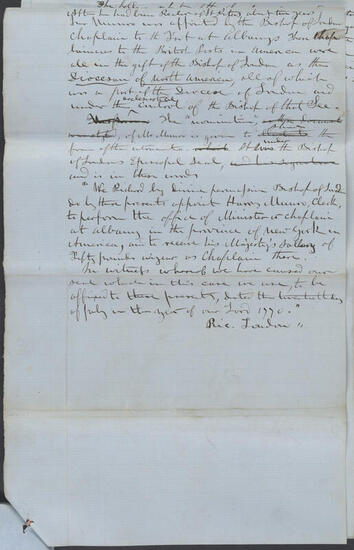 after he had been Rector of
Mr Munro was appointed by the Bishop of London
Chaplain to the Fort at Albany. These chap
laincies to the British Posts in America were
all in the gift of the Bishop of London as the
Diocesan of North America, all of which
was a part of the Diocese of London and
under the ecclesiastical of the Bishop of that See.
The "nomination"
of Mr Munro is given to the
form of the It has the Bishop
of London's Episcopal Seal, and
and is in these words
"We Richard by Divine permission Bishop of Lond
do by these presents appoint Harry Munro, Clerk,
to perform the office of Minister or Chaplain
at Albany in the province of New York in
America, and to receive his Majesty's Sallery of
Fifty pounds as Chaplain there.
In witness whereof we have caused our
seal which in this case we use, to be
affixed to these presents, dated the day
of July in the year of our Lord 1770."
Ric. London "